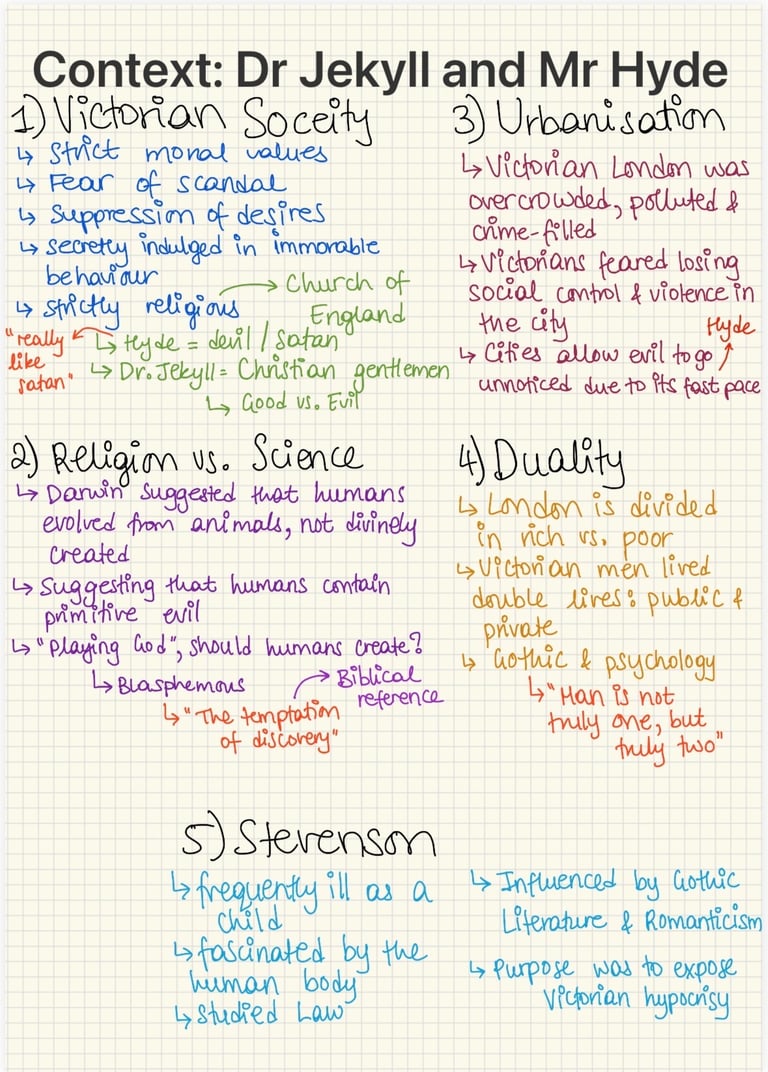 Context: Dr Jekyll and Mr Hyde
1) Victorian Soceity
↳ Strict moral values
↳ Fear of scandal
↳ Suppression of desires
↳ secretly indulged in immorable
behaviour
↳ strictly religious
Church of
England
"really
like
satan"
↳ Hyde = devil / Satan
↳ Dr. Jekyll = Christian gentlemen
↳ Good vs. Evil
2) Religion vs. Science
↳ Darwin suggested that humans
evolved from animals, not divinely
created
↳ Suggesting that humans contain
primitive evil
↳ "Playing God", should humans create?
↳ Blasphemous
Biblical
reference
↳ "The temptation
of discovery"
3) Urbanisation
↳ Victorian London was
overcrowded, polluted &
crime-filled
↳ Victorians feared losing
social control & violence in
the city
Hyde
↳ Cities allow evil to go
unnoticed due to its fast pace
4) Duality
↳ London is divided
in rich vs. poor
↳ Victorian men lived
double lives: public &
private
↳ Gothic & psychology
↳ "Man is not
truly one, but
truly two"
5) Stevenson
↳ frequently ill as a
child
↳ fascinated by the
human body
↳ Studied Law
↳ Influenced by Gothic
Literature & Romanticism
↳ Purpose was to expose
Victorian hypocrisy